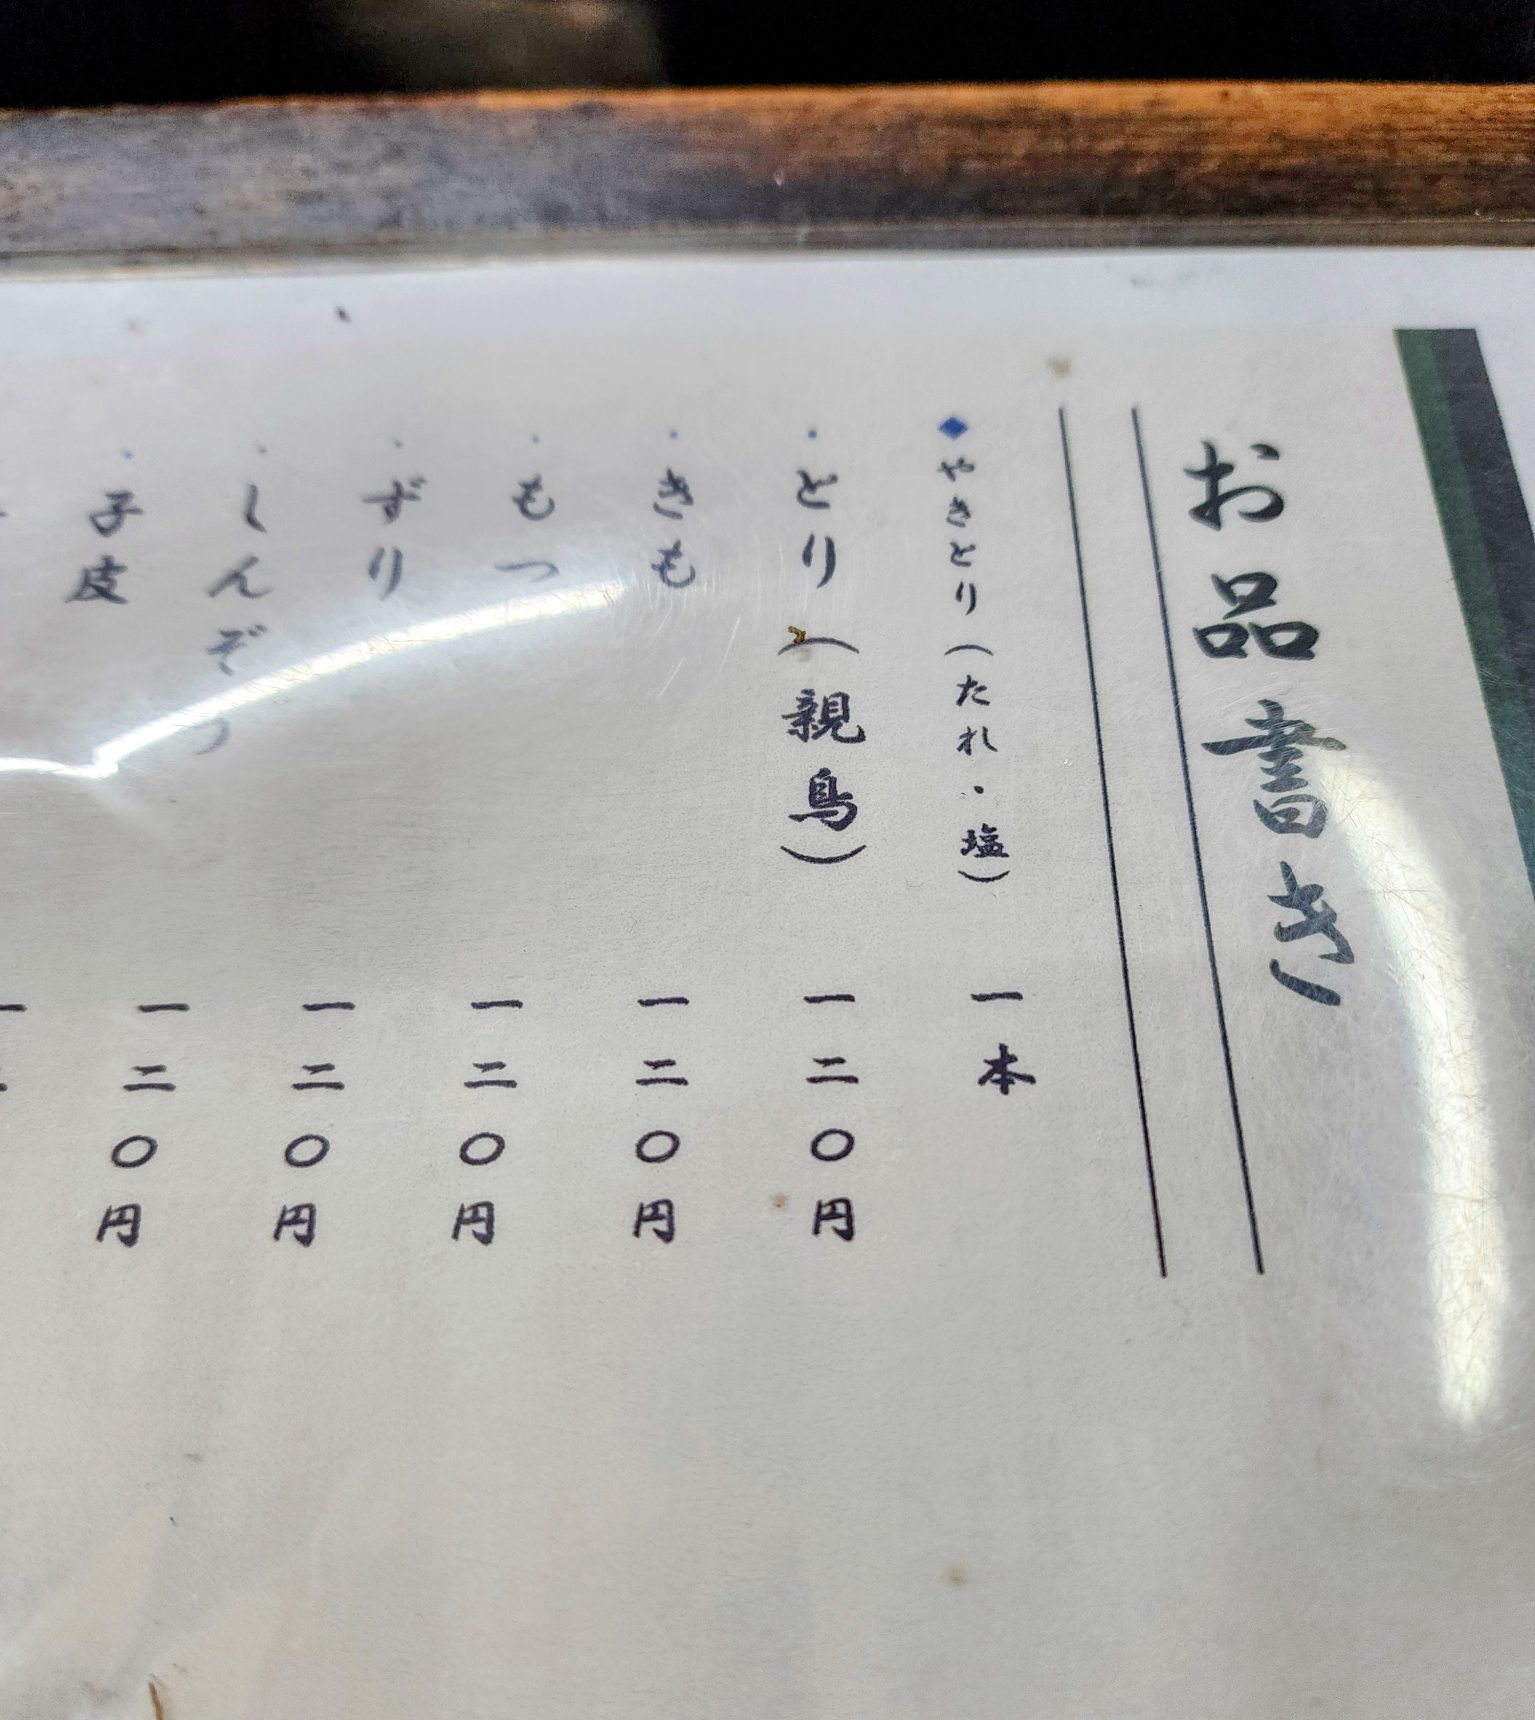 お品書き
◆やきとり(たれ・塩) 一本
・とり(親鳥) 一二〇円
・きも 一二〇円
・もつ 一二〇円
・ずり 一二〇円
・しんぞう 一二〇円
・子皮 一二〇円